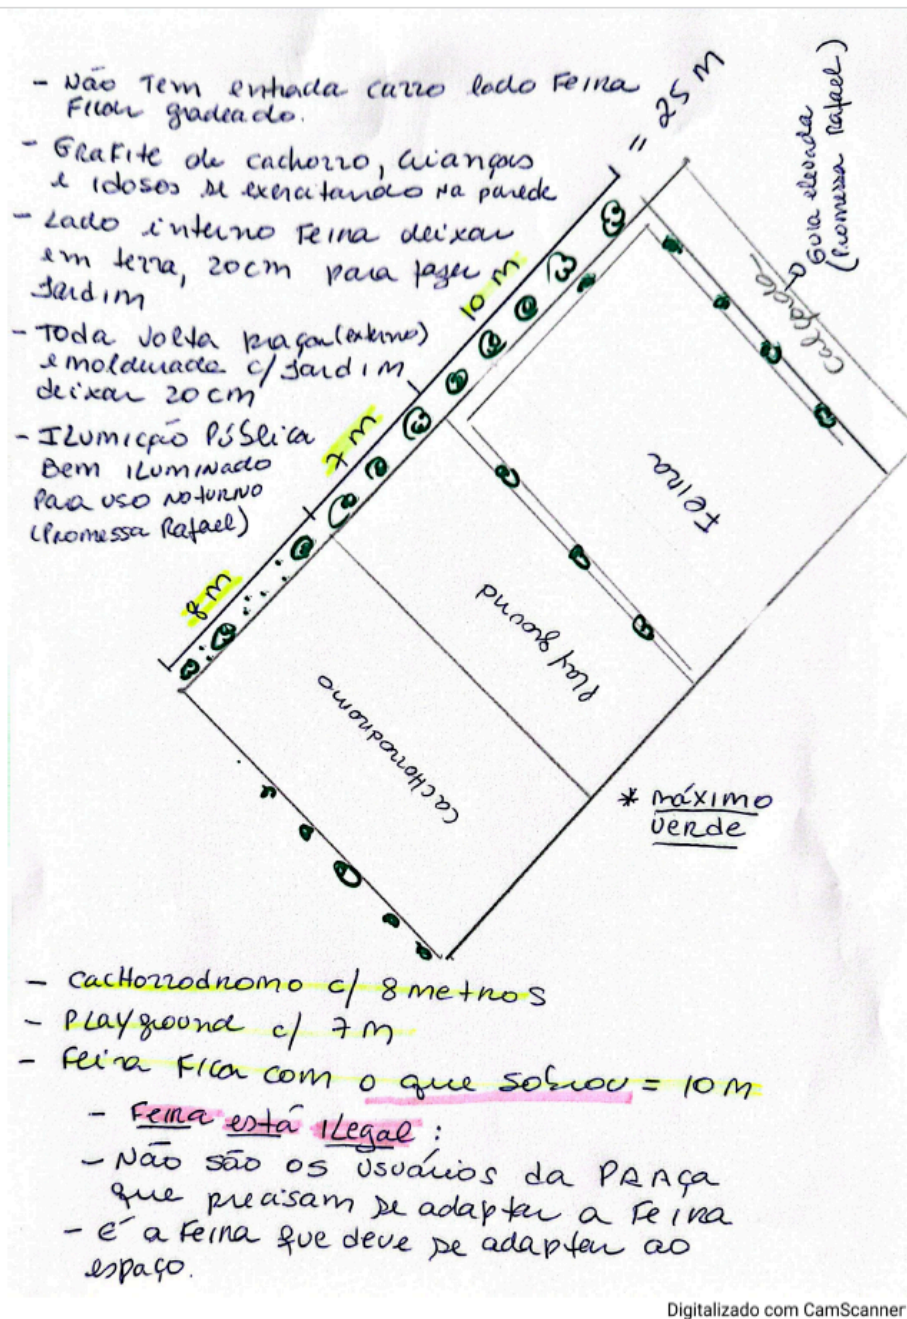 - Não Tem entrada carro lado Feira
Ficar gradeado.
- GRAFITE de cachorro, crianças
e idosos se exercitando na parede
- Lado interno Feira deixar
em terra, 20cm para fazer
Jardim
- Toda volta praça (externo)
emoldurada c/ Jardim
deixar 20cm
- ILUMICÇÃO PÚBLICA
Bem ILUMINADO
Para uso noturno
(Promessa Rafael)
= 25 M
10 M
7 M
8 M
Guia elevada
(Promessa Rafael)
Calçada
Feira
Playground
cacHorrodromo
* máximo
verde
- cacHorrodromo c/ 8 metros
- Playground c/ 7 M
- Feira Fica com o que sobrou = 10 M
- Feira está ilegal :
- Não são os usuários da PRAÇA
que precisam se adaptar a Feira
- é a Feira que deve se adaptar ao
espaço.
Digitalizado com CamScanner